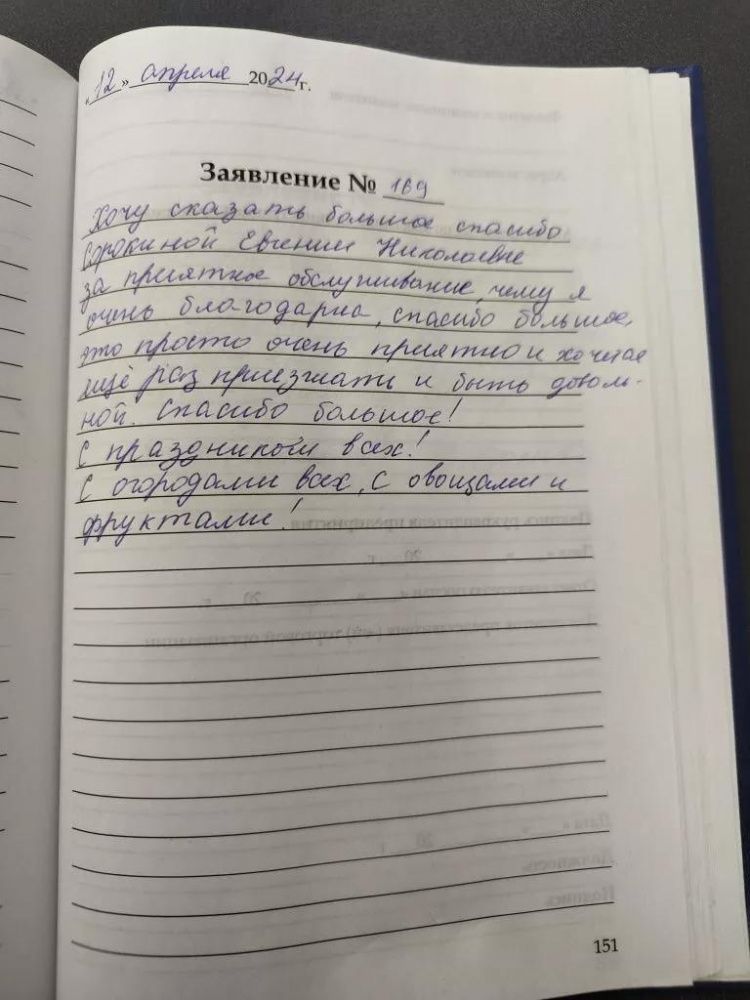 «12» апреля 2024 г.
Заявление № 169
Хочу сказать большое спасибо
Сорокиной Евгении Николаевне
за приятное обслуживание, чему я
очень благодарна, спасибо большое,
это просто очень приятно и хочется
ещё раз приезжать и быть доволь-
ной. Спасибо большое!
С праздником всех!
С огородами всех, с овощами и
фруктами!
151